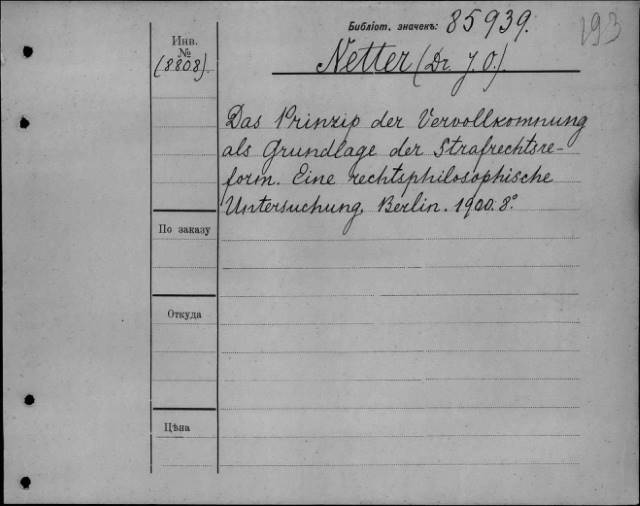 Библіот. значекъ: 85939.
193
Инв.
№
(8808).
Netter (Dr J. O.).
Das Prinzip der Vervollkomnung
als Grundlage der Strafrechtsre-
form. Eine rechtsphilosophische
Untersuchung. Berlin. 1900. 8°
По заказу
Откуда
Цѣна